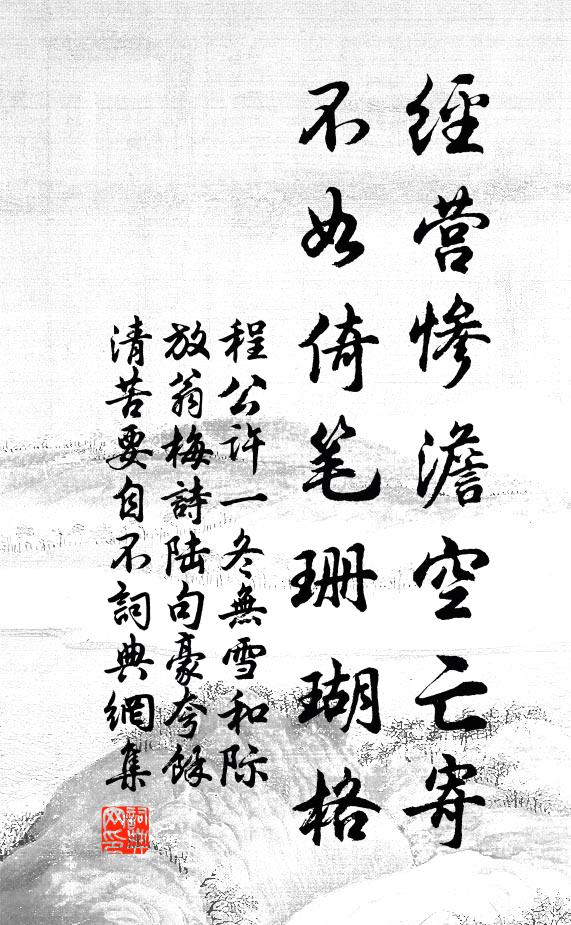 經营惨澹空亡寄
不如倚笔珊瑚格
程公许一冬無雪和际
放翁梅詩陆句豪夸餘
清苦要自不詞典網集